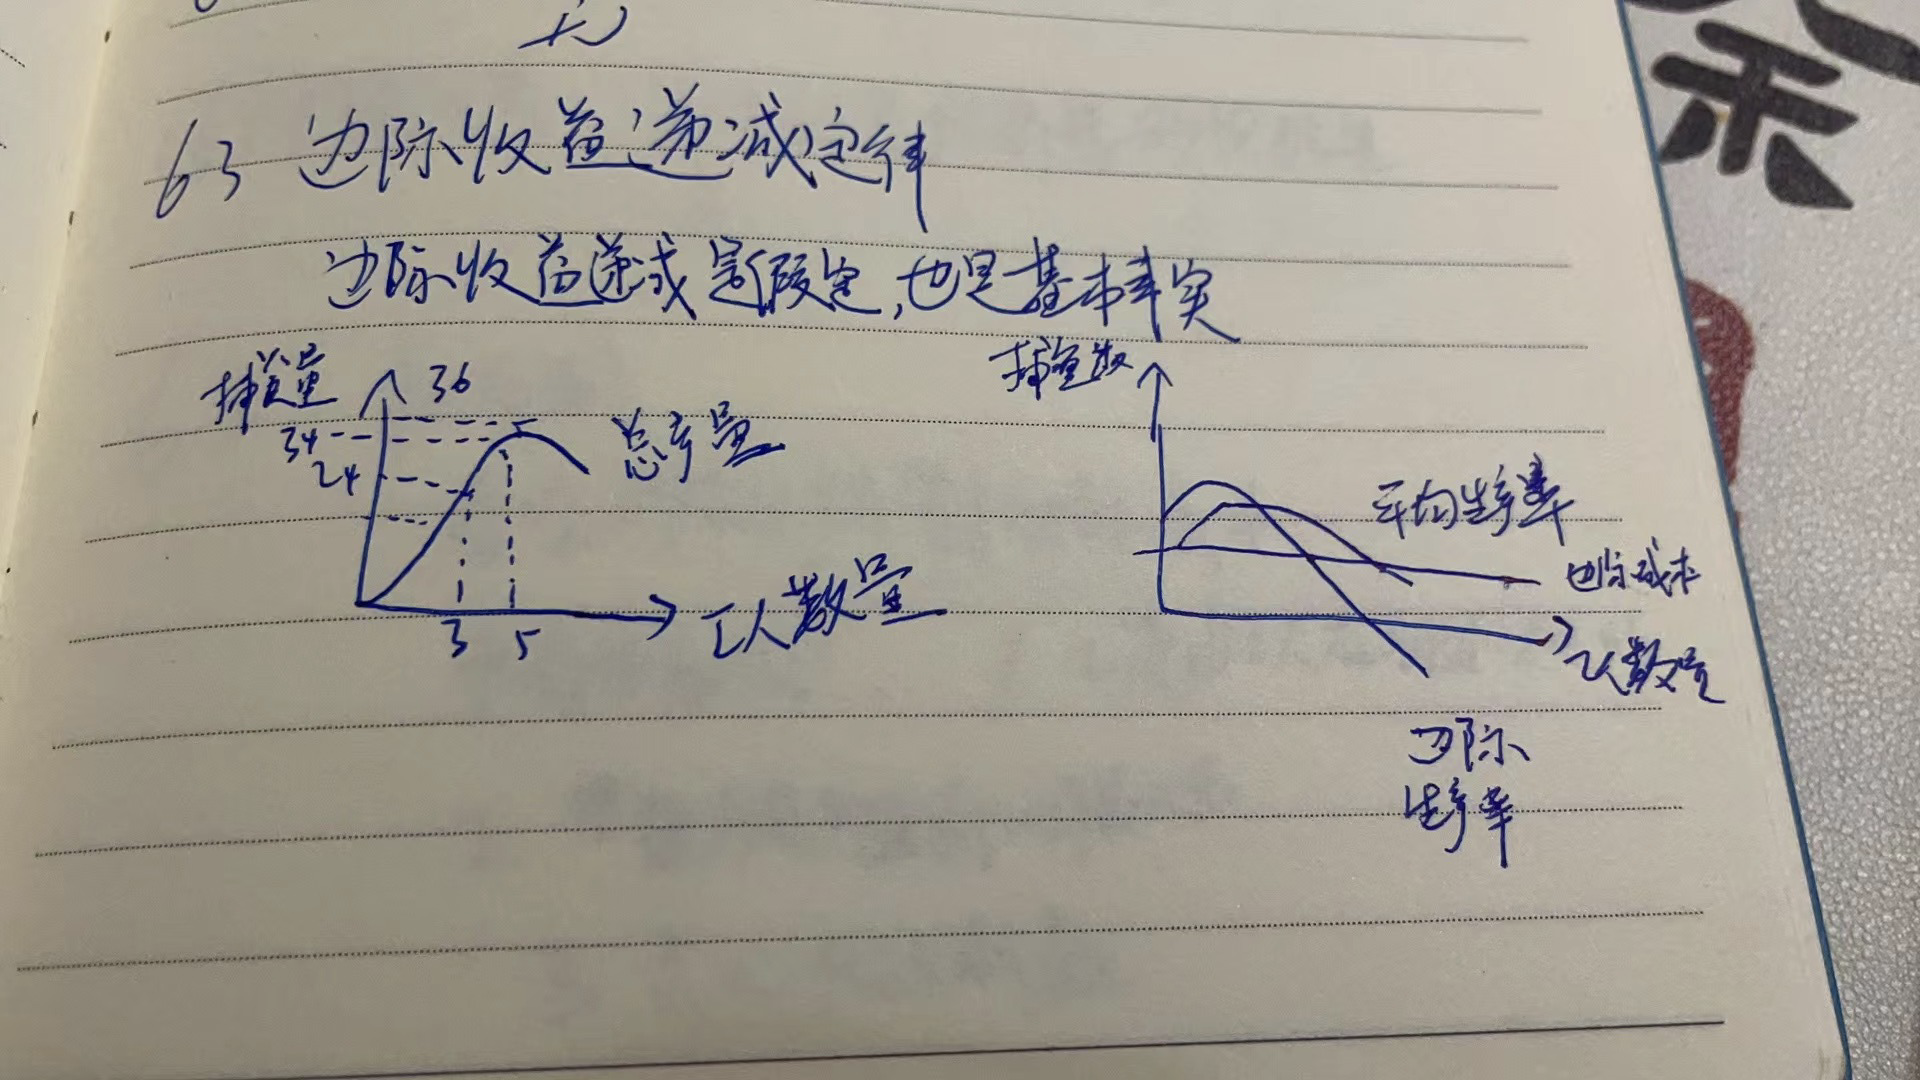 63 边际收益递减定律
边际收益递减是假定,也是基本事实
捕鱼量
36
34
24
总产量
3
5
工人数量
捕鱼数
平均生产率
边际成本
工人数量
边际
生产率